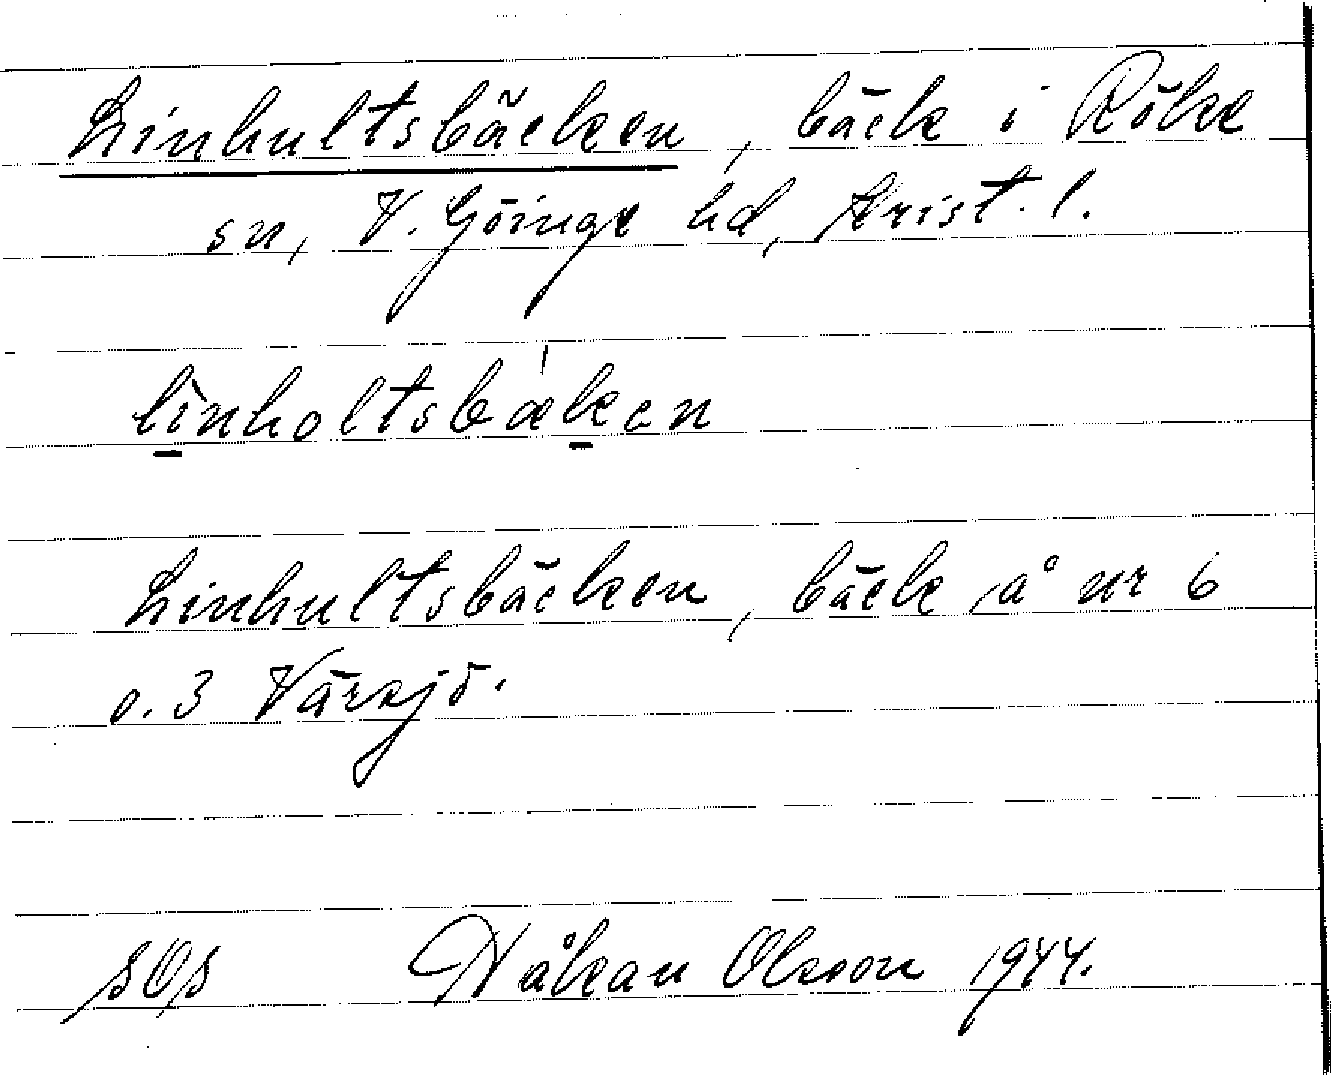 Linhultsbäcken, bäck i Röke
sn, V. Göinge hd, Krist. l.
lìnholtsbæken
Linhultsbäcken, bäck å nr 6
o. 3 Värsjö.
SOS Håkan Olsson 1944.